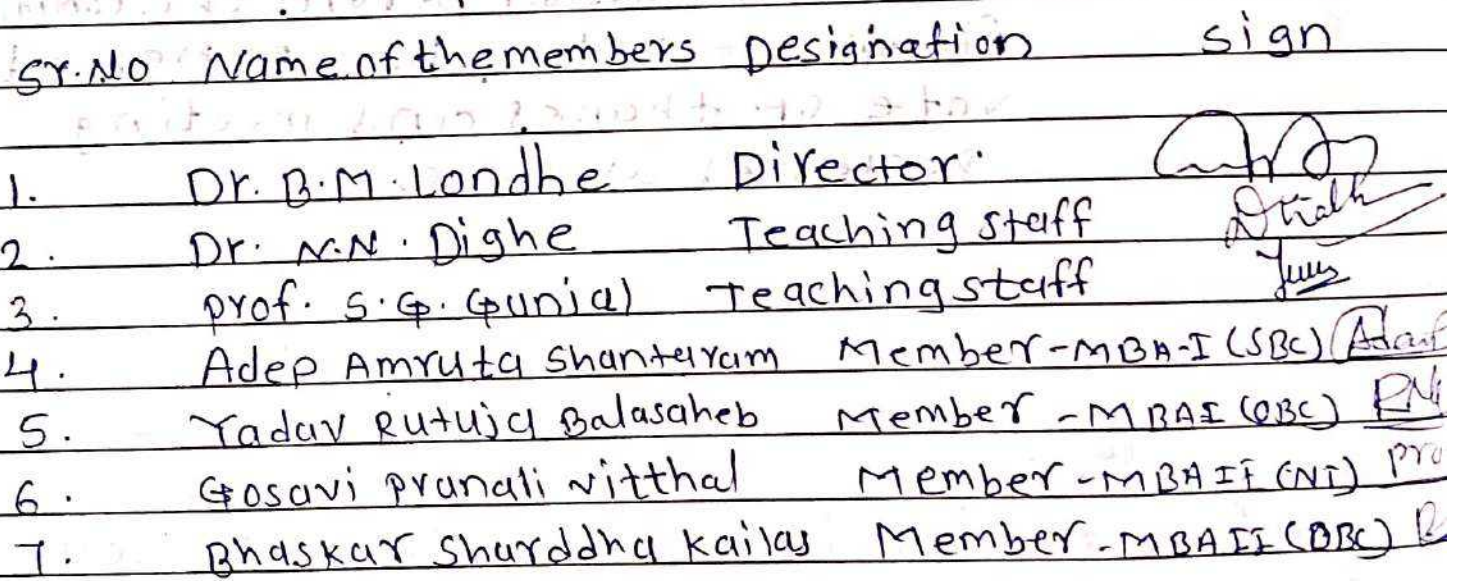 Sr.No Name of the members Designation sign
1. Dr. B.M. Londhe Director.
2. Dr. N.N. Dighe Teaching staff
3. prof. S.G. Gunjal Teaching staff
4. Adep Amruta Shantaram Member-MBA-I (SBC)
5. Yadav Rutuja Balasaheb Member - MBAI (OBC)
6. Gosavi pranali vitthal Member - MBAII (NT)
7. Bhaskar Sharddha kailas Member - MBAII (OBC)